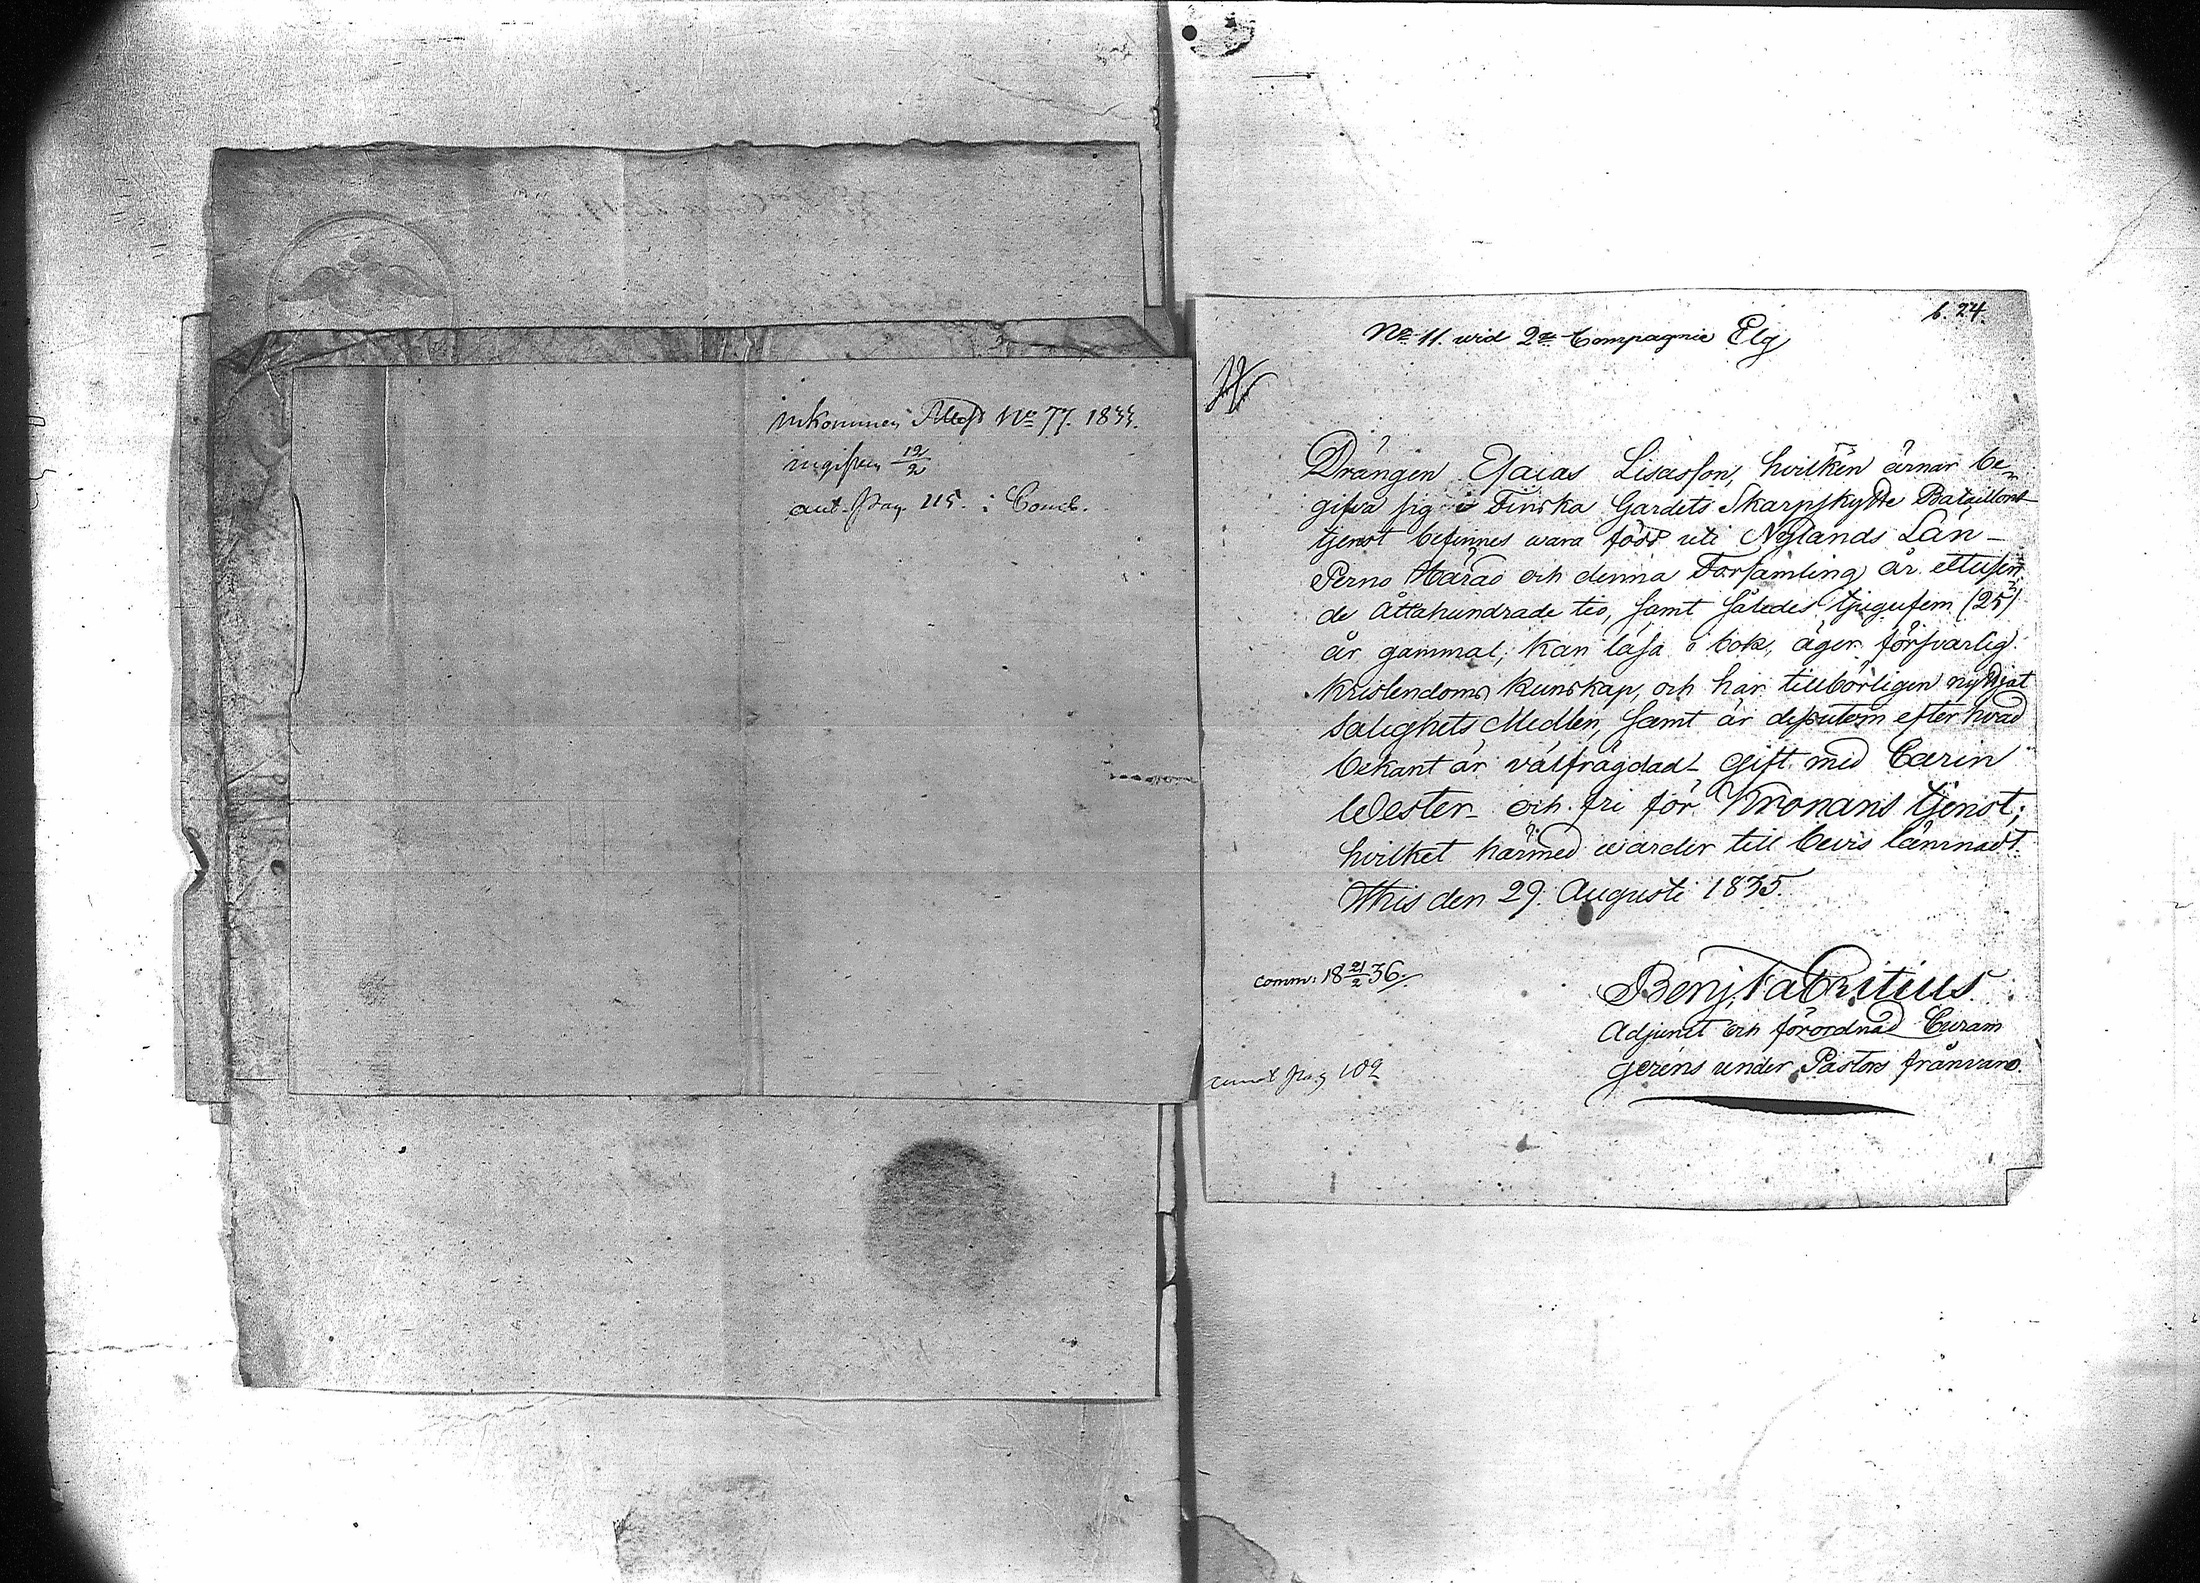 inkommen Attest No 77. 1835.
ingifven 12/2
ant. pag. 115. i Comb.
b. 24.
No 11. wid 2a Compagnie Elg
Drängen Esaias Lisasson, hvilken ärnar be-
gifva sig i Finska Gardets Skarpskytte Bataillons
tjenst befinnes wara född uti Nylands Län -
Perno Härad och denna Församling år ettusen-
de Åttahundrade tio, samt således tjugufem (25)
år gammal; kan läsa i bok, äger försvarlig
kristendoms kunskap, och har tillbörligen nyttjat
Salighets Medlen, samt är dessutom efter hvad
bekant är välfrägdad - gift med Carin
Wester - och fri för Kronans tjenst;
hvilket härmed warder till bevis lämnadt.
Ithis den 29. Augusti 1835.
comm: 18 21/2 36.
Benj. Fabritius
Adjunct och förordnad Curam
gerens under Pastors frånvaro.
pag 102